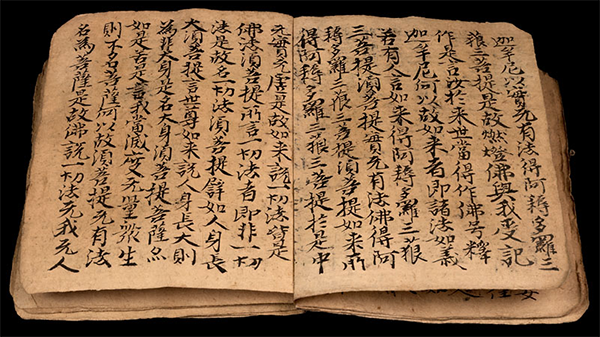 迦牟尼以實无有法得阿耨多羅三
藐三菩提是故燃燈佛與我受記
作是言汝於来世當得作佛号釋
迦牟尼何以故如来者即諸法如義
若有人言如来得阿耨多羅三藐
三菩提湏菩提實无有法佛得阿
耨多羅三藐三菩提湏菩提如来所
得阿耨多羅三藐三菩提於是中
无實无虛是故如来說一切法皆是
佛法湏菩提所言一切法者即非一切
法是故名一切法湏菩提譬如人身長
大湏菩提言世尊如来說人身長大則
為非大身是名大身湏菩提菩薩亦
如是若是言我當滅度无量衆生
則不名菩薩何以故湏菩提无有法
名為菩薩是故佛說一切法无我无人